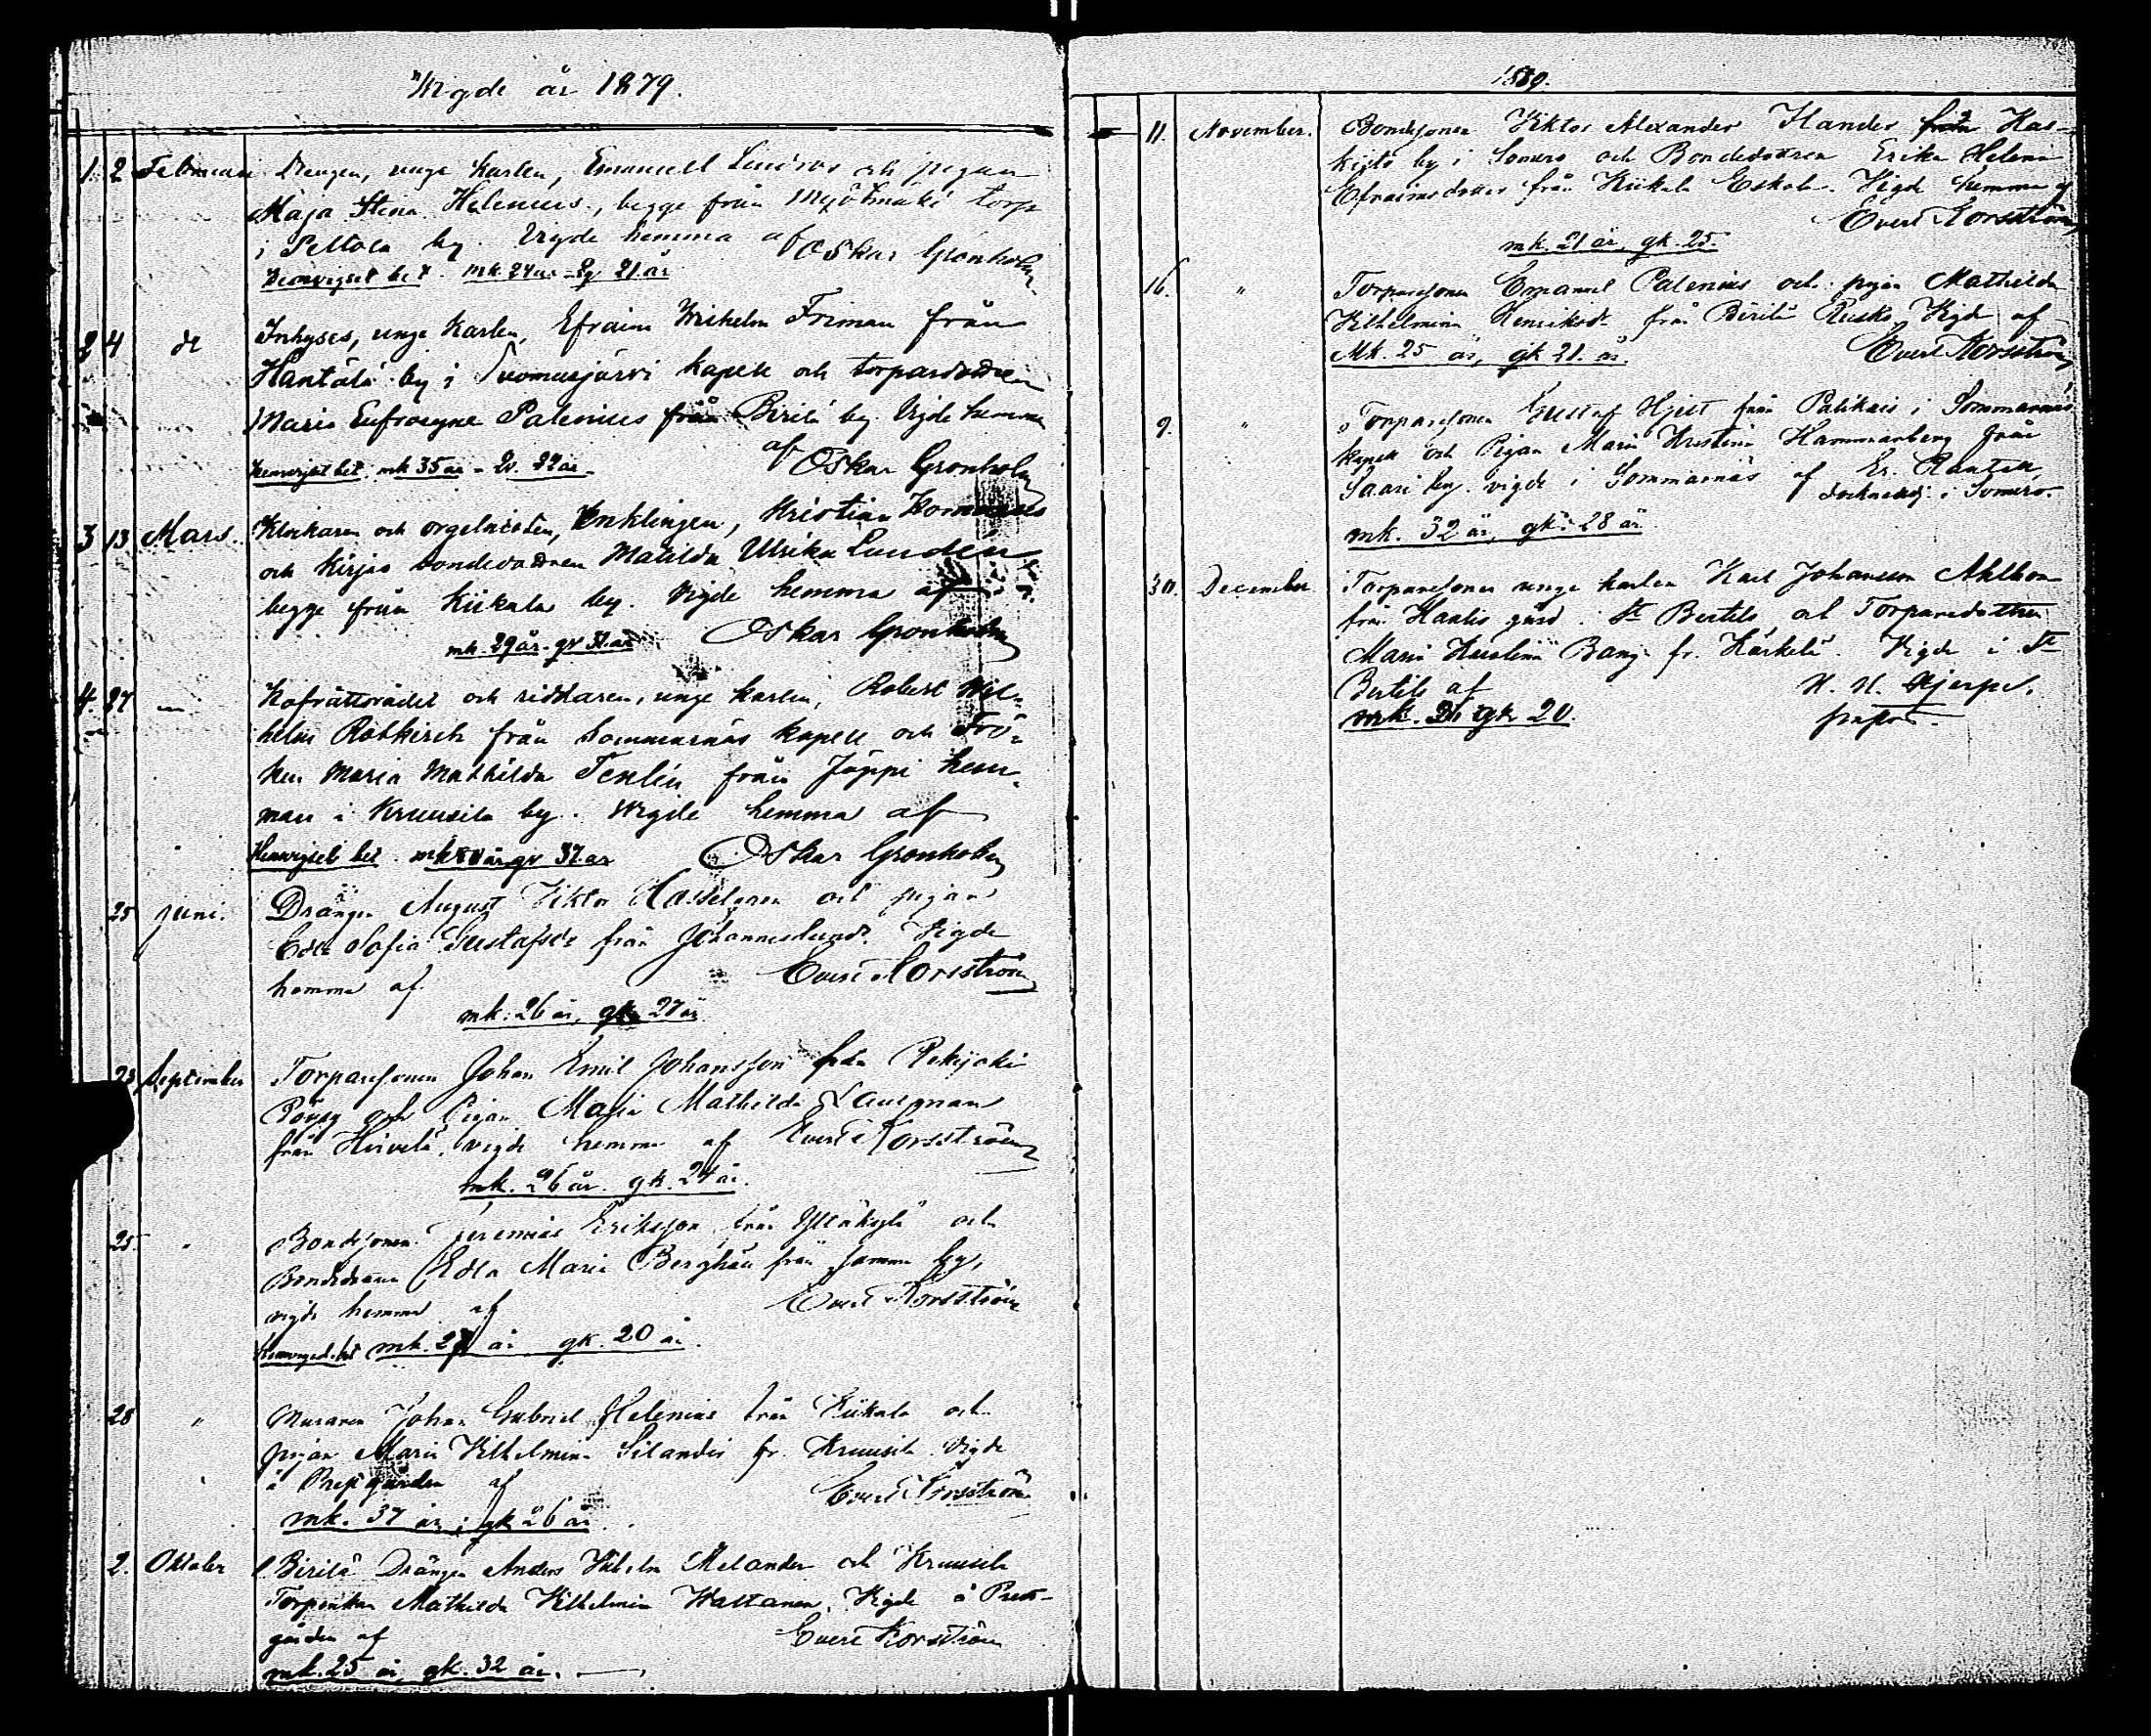 Wigde år 1879.
1. 2 Februari Drengen, unge Karlen, Emanuel Lindroos och pigan
Maja Stina Helenius, begge från torp
i Peltola by. Vigde hemma af Oskar Gronholm
Hemvigset bet. mk. 24 år - 21 år
2 4 de Inhyses, unge Karlen, Efraim Wilhelm Friman från
Hantälä by i Suomusjärvi kapell och torparedottren
Maria Eufrosyne Palenius från Pirilä by. Vigde hemma
af Oskar Gronholm
Hemvigset bet. mk 35 år -
3 13 Mars. Klockaren och orgelnisten, Enklingen, Kristian
och Kirjas bondedottren Matilda Ulrika Lunden
begge från Kiikala by. Vigde hemma af
mk. 29 år. Oskar Gronholm
4. 27 Hofrättsrådet och riddaren, unge karlen, Robert Wil-
helm Rotkirch från Sommarnäs kapell och Frö-
ken Maria Mathilda Tenlén från Jäppi hem-
man i Kruusila by. Wigde hemma af
Hemvigset bet. 37 år Oskar Gronholm
25 juni. Drängen August Viktor Hasselgren och pigan
Edla Sofia Gustafsdr från Johanneslund. Vigde
hemma af Evert Korsström
mk. 26 år, gk 27 år
23 September Torparesonen Johan Emil Johansson från Rekijoki
och Pigan Maria Mathilda
från Hirvelä, vigde hemma af Evert Korsström
mk. 26 år. gk. 24 år.
25. " Bondesonen Jeremias Eriksson från och
Edla Maria Berghäll från samma by,
vigde hemma af Evert Korsström
mk. 27 år gk. 20 år.
28 " Muraren Johan Gabriel Helenius från Kiikala och
pigan Maria Vilhelmina Silander fr. Kruusila. Vigde
å Prestgården af Evert Korsström
mk. 37 år; gk 26 år.
2. Oktober Pirilä Drängen Anders Vilhelm Melander och Kruusila
Mathilda Vilhelmina Hattanen. Vigde å Prest-
gården af Evert Korsström
mk. 25 år, gk. 32 år.
1879.
11. November. Bondesonen Viktor Alexander Hander från Has-
kistö by i Somero och Bondedottren Erika Helena
Efraimsdotter från Kiikala Eskola. Vigde hemma af
Evert Korsström
mk. 21 år, gk. 25.
16. " Torparesonen Emanuel Palenius och pigan Mathilda
Vilhelmina Henriksdr från Pirilä Rusko. Vigde af
Mk. 25 år, gk 21. år. Evert Korsström
9. " Torparesonen Gustaf Hjelt från Palikais i Sommarnäs
kapell och Pigan Maria Kristina Hammarberg från
Saari by. vigde i Sommarnäs af
i Somero.
mk. 32 år, gk. 28 år
30. December Torparesonen unge karlen Karl Johansson
från gård i St Bertils och Torparedottren
Maria fr. Härkälä. Vigde i St
Bertils af
gk 20.